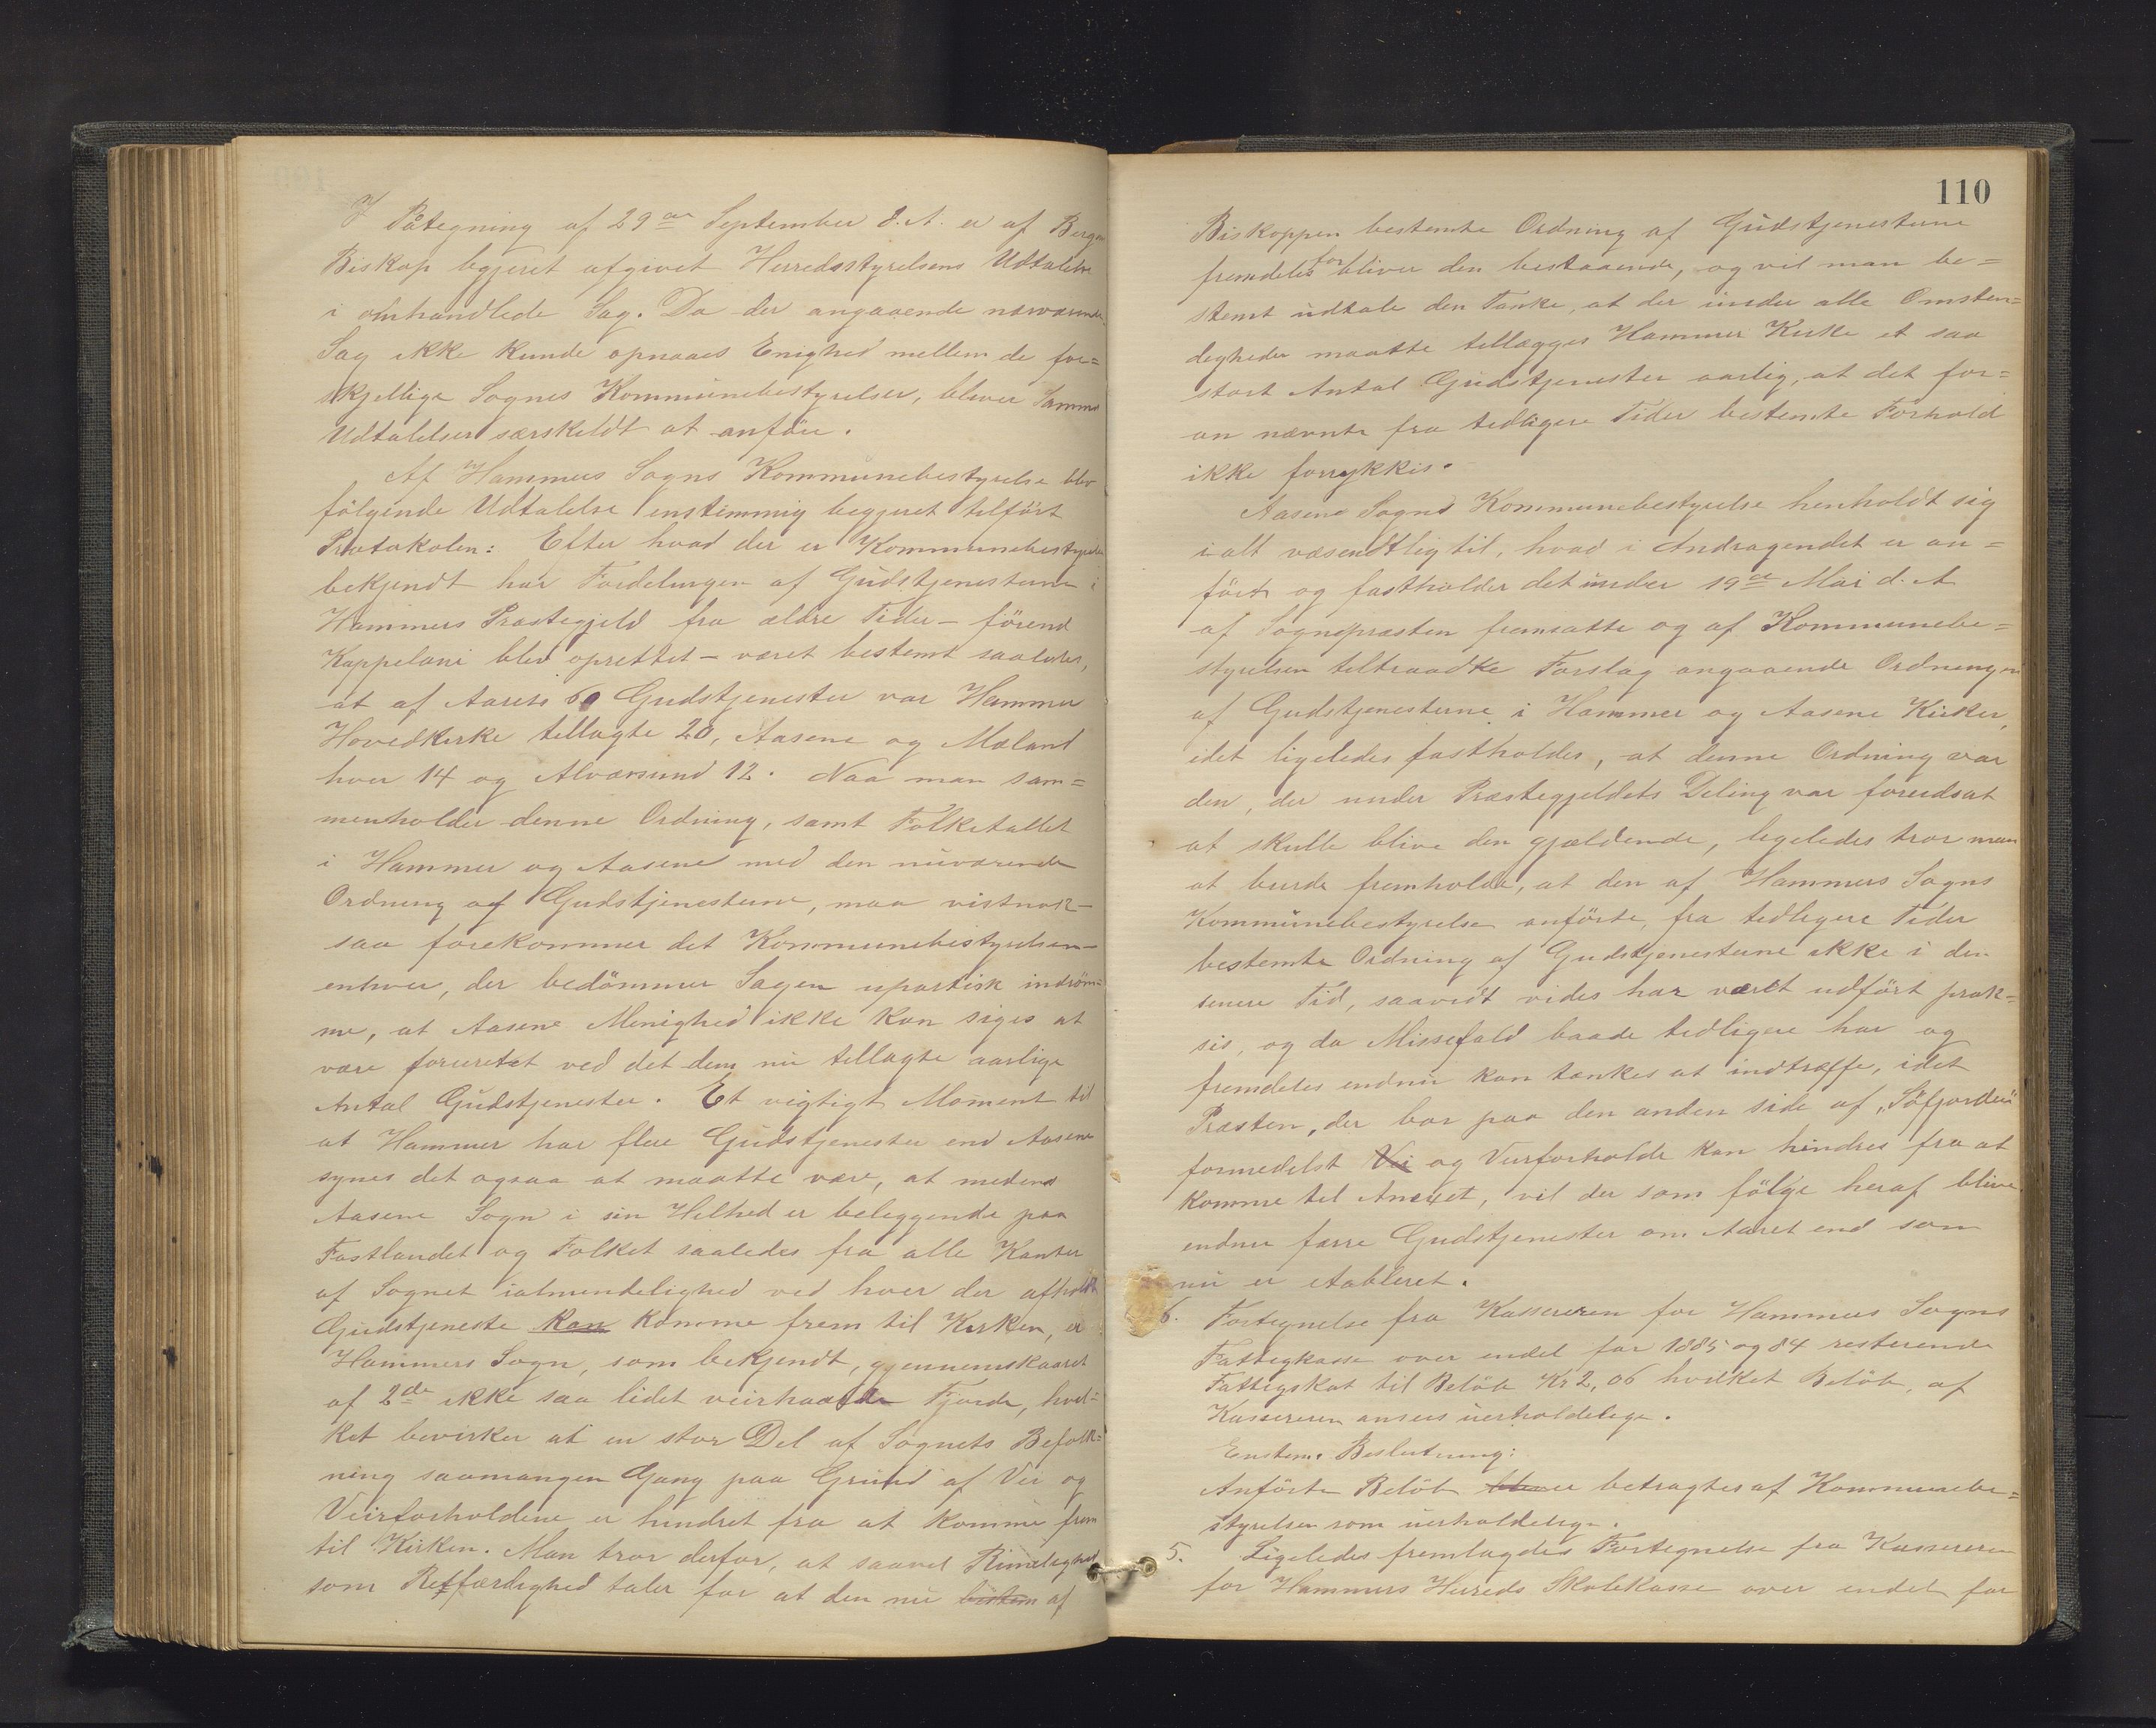 I Påtegning af 29de September d.A. er af Bergens
Biskop begjeret afgivet Herredsstyrelsens Udtalelse
i omhandlede Sag. Da der angaaende nærværende
Sag ikke kunde opnaaes Enighed mellem de for=
skjellige Sognes Kommunebestyrelser, bliver Sammes
Udtalelser særskildt at anföre.
Af Hammers Sogns Kommunebestyrelse blev
fölgende Udtalelse enstemmig begjeret tilfört
Protokolen: Efter hvad der er Kommunebestyrelsen
bekjendt har Fordelingen af Gudstjenesterne i
Hammers Præstegjeld fra ældre Tider – förend
Kappelani blev oprettet – været bestemt saaledes,
at af Aarets 60 Gudstjenester var Hammer
Hovedkirke tillagte 20, Aasene og Mæland
hver 14 og Alværsund 12. Naa man sam=
menholder denne Ordning, samt Folketallet
i Hammer og Aasene med den nuværende
Ordning af Gudstjenesterne, maa vistnok –
saa forekommer det Kommunebestyrelsen –
enhver, der bedömmer Sagen upartisk indröm=
me, at Aasene Menighed ikke kan siges at
være foruretet ved det dem nu tillagte aarlige
Antal Gudstjenester. Et vigtigt Moment til
at Hammer har flere Gudstjenester end Aasene
synes det ogsaa at maatte være, at medens
Aasene Sogn i sin Helhed er beliggende paa
Fastlandet og Folket saaledes fra alle Kanter
af Sognet ialmindelighed ved hver der afholdt
Gudstjeneste kan komme frem til Kirken, er
Hammers Sogn, som bekjendt, gjennemskaaret
af 2de ikke saa lidet veirhaarde Fjorde, hvil=
ket bevirker at en stor Del af Sognets Befolk=
ning saamangen Gang paa Grund af Vei og
Veirforholdene er hindret fra at komme frem
til Kirken. Man tror derfor, at saavel Rimelighed
som Retfærdighed taler for at den nu bestem af
110
Biskoppen bestemte Ordning af Gudstjenesterne
fremdeles forbliver den bestaaende, og vil man be=
stemt udtale den Tanke, at der under alle Omsten=
digheder maatte tillægges Hammer Kirke et saa
stort Antal Gudstjenester aarlig, at det for=
an nævnte fra tidligere Tider bestemte Forhold
ikke forrykkes.
Aasene Sogns Kommunebestyrelse henholdt sig
ialt væsendtlig til, hvad i Andragendet er an=
fört og fastholder det under 19de Mai d.A
af Sognepræsten fremsatte og af Kommunebe=
styrelsen tiltraadte Forslag angaaende Ordningen
af Gudstjenesterne i Hammer og Aasene Kirker,
idet ligeledes fastholdes, at denne Ordning var
den, der under Præstegjeldets Deling var forudsat
at skulle blive den gjældende, ligeledes tror man
at burde fremholde, at den af Hammers Sogns
Kommunebestyrelse anförte, fra tidligere Tider
bestemte Ordning af Gudstjenesterne ikke i den
senere Tid, saavidt vides har været udfört prak=
sis, og da Missefald baade tidligere har og
fremdeles endnu kan tænkes at indtræffe, idet
Præsten, der bor paa den anden side af „Söfjorden"
formedelst Vei og Veirforholde kan hindres fra at
komme til Anexet, vil der som fölge heraf blive
endnu færre Gudstjenester om Aaret end som
nu er etableret.
6. Fortegnelse fra Kassereren for Hammers Sogns
Fattigkasse over endel for 1885 og 84 resterende
Fattigskat til Belöb Kr 2,06 hvilket Belöb, af
Kassereren ansees uerholdelige.
Enstem. Beslutning:
Anförte Belöb betragtes af Kommunebe=
styrelsen som uerholdelige.
5. Ligeledes fremlagdes Fortegnelse fra Kassereren
for Hammers Herreds Skolekasse over endel for